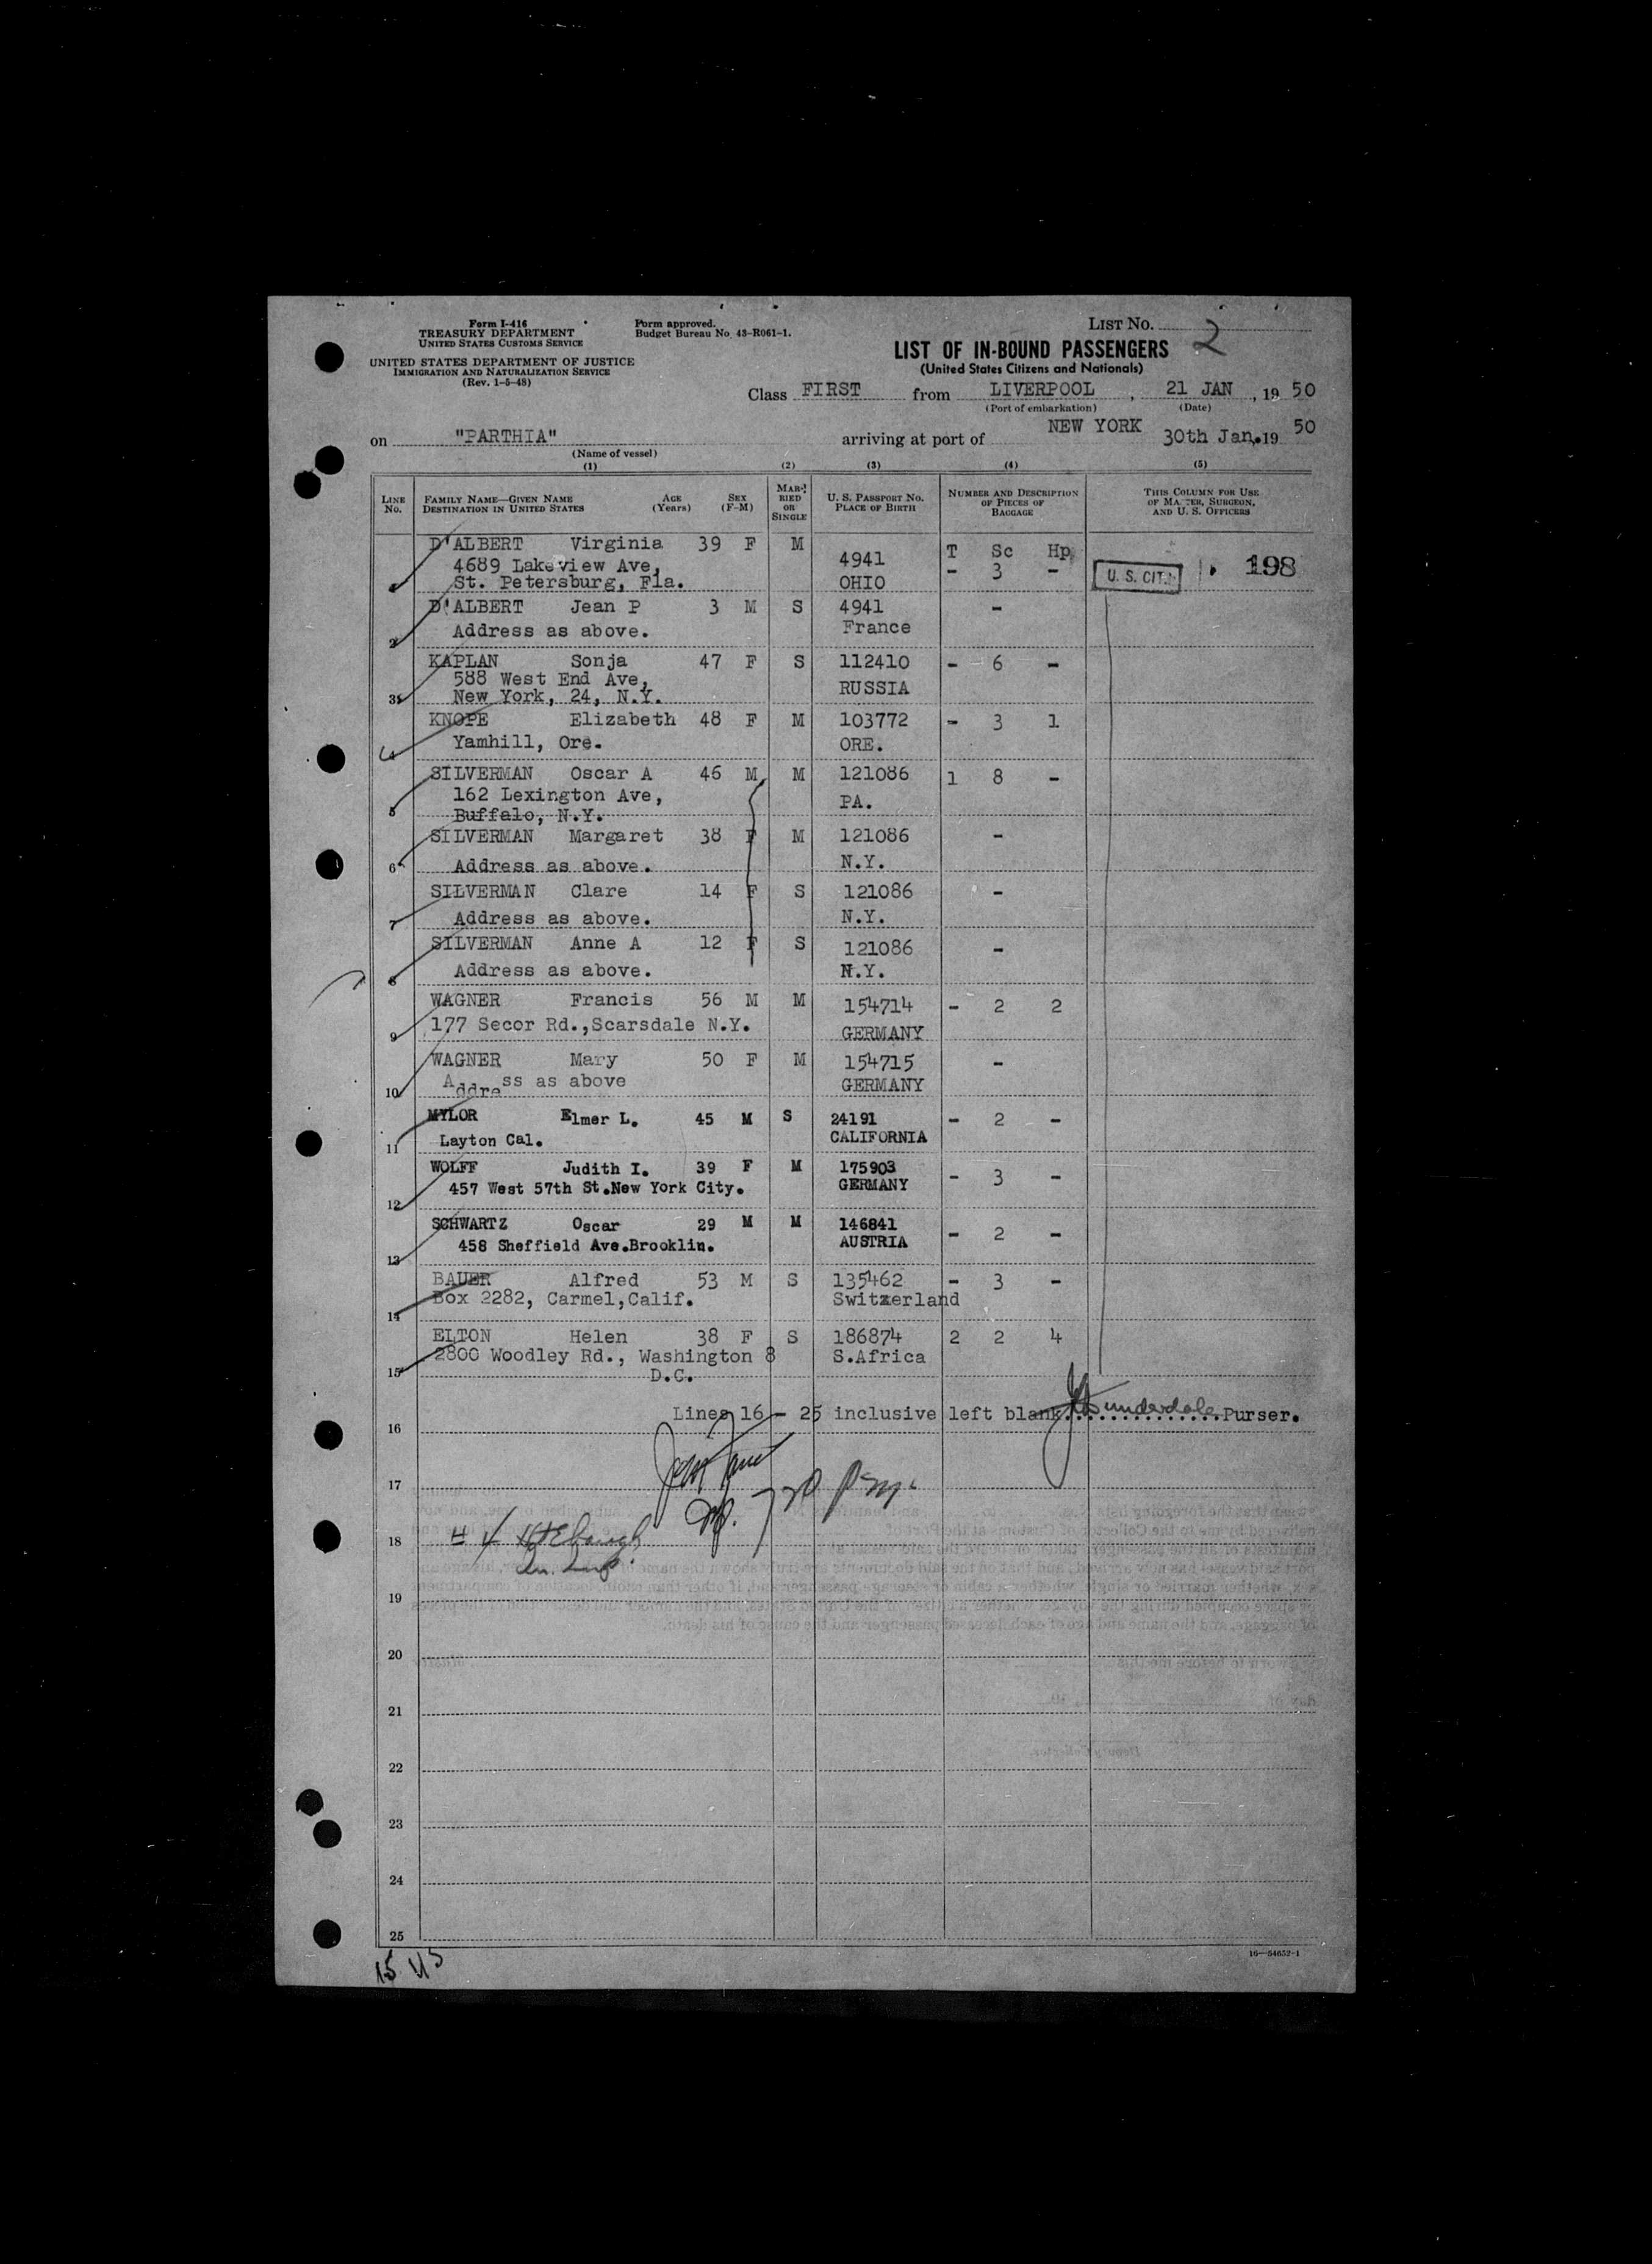 Form I-416
TREASURY DEPARTMENT
UNITED STATES CUSTOMS SERVICE
UNITED STATES DEPARTMENT OF JUSTICE
IMMIGRATION AND NATURALIZATION SERVICE
(Rev. 1-5-48)
Form approved.
Budget Bureau No. 43-R061-1.
LIST NO. 2
LIST OF IN-BOUND PASSENGERS
(United States Citizens and Nationals)
Class FIRST from LIVERPOOL, 21 JAN, 19 50
(Port of embarkation) (Date)
on "PARTHIA" arriving at port of NEW YORK 30th Jan. 19 50
(Name of vessel)
(1) (2) (3) (4) (5)
LINE NO. FAMILY NAME—GIVEN NAME DESTINATION IN UNITED STATES AGE (Years) SEX (F-M) MARRIED OR SINGLE U. S. PASSPORT NO. PLACE OF BIRTH NUMBER AND DESCRIPTION OF PIECES OF BAGGAGE THIS COLUMN FOR USE OF MASTER, SURGEON, AND U. S. OFFICERS
D'ALBERT Virginia 39 F M 4941 T Sc Hp
4689 Lakeview Ave, - 3 - U. S. CIT. 198
St. Petersburg, Fla. OHIO
2 D'ALBERT Jean P 3 M S 4941 -
Address as above. France
3 KAPLAN Sonja 47 F S 112410 - 6 -
588 West End Ave,
New York, 24, N.Y. RUSSIA
4 KNOPE Elizabeth 48 F M 103772 - 3 1
Yamhill, Ore. ORE.
5 SILVERMAN Oscar A 46 M M 121086 1 8 -
162 Lexington Ave, PA.
Buffalo, N.Y.
6 SILVERMAN Margaret 38 F M 121086 -
Address as above. N.Y.
7 SILVERMAN Clare 14 F S 121086 -
Address as above. N.Y.
8 SILVERMAN Anne A 12 F S 121086 -
Address as above. N.Y.
9 WAGNER Francis 56 M M 154714 - 2 2
177 Secor Rd.,Scarsdale N.Y. GERMANY
10 WAGNER Mary 50 F M 154715 -
Address as above GERMANY
11 MYLOR Elmer L. 45 M S 24191 - 2 -
Layton Cal. CALIFORNIA
12 WOLFF Judith I. 39 F M 175903 - 3 -
457 West 57th St.New York City. GERMANY
13 SCHWARTZ Oscar 29 M M 146841 - 2 -
458 Sheffield Ave.Brooklin. AUSTRIA
14 BAUER Alfred 53 M S 135462 - 3 -
Box 2282, Carmel,Calif. Switzerland
15 ELTON Helen 38 F S 186874 2 2 4
2800 Woodley Rd., Washington 8 S.Africa
D.C.
Lines 16 - 25 inclusive left blank. Sunderdale Purser.
16
17
18
19
20
21
22
23
24
25
15 US
16—54652-1